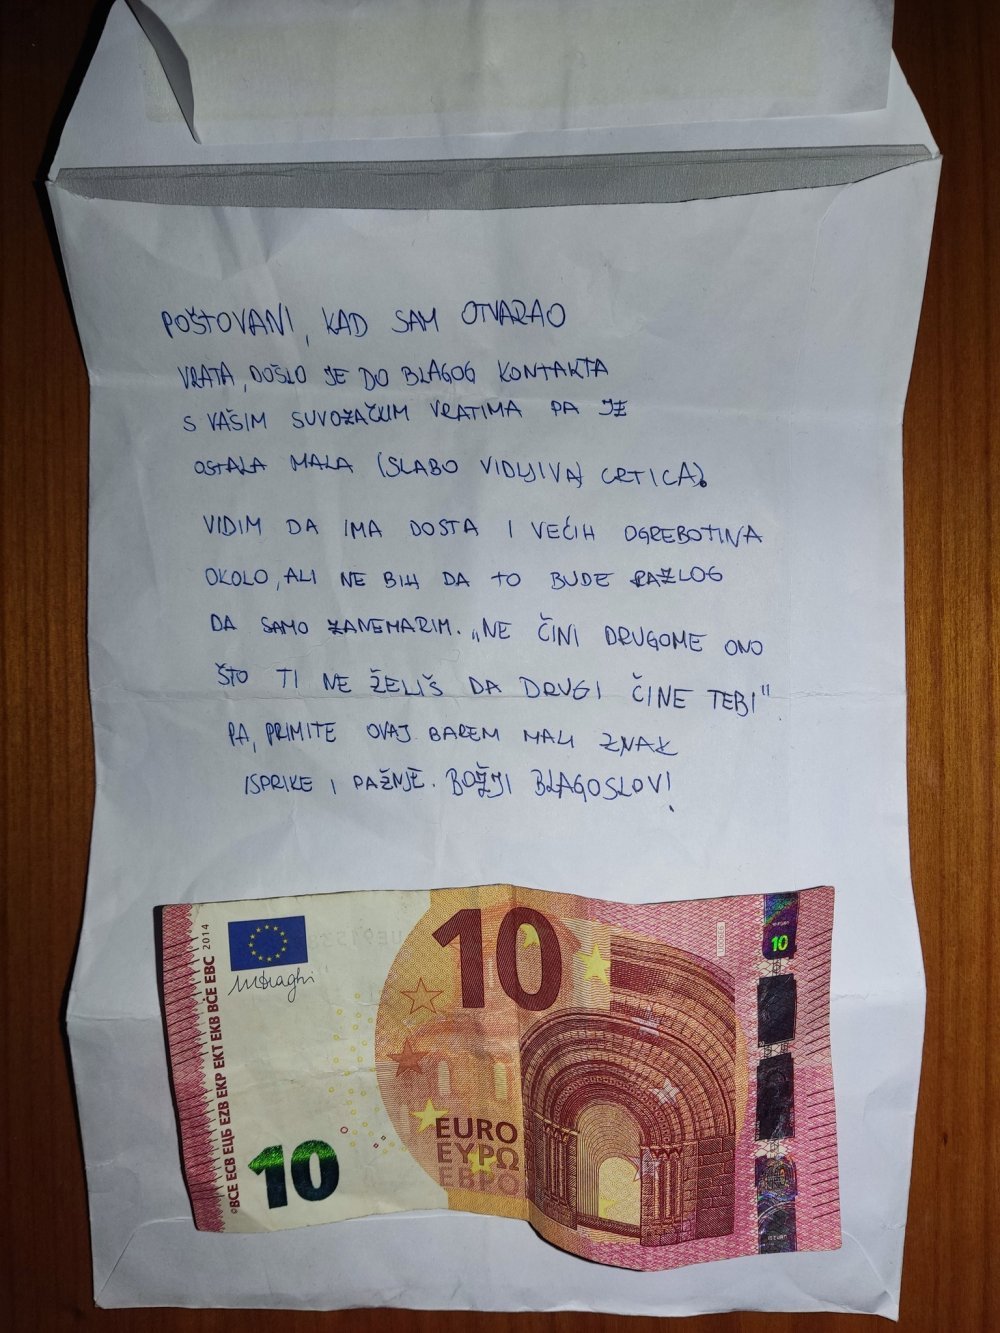 POŠTOVANI, KAD SAM OTVARAO
VRATA, DOŠLO JE DO BLAGOG KONTAKTA
S VAŠIM SUVOZAČKIM VRATIMA PA JE
OSTALA MALA (SLABO VIDLJIVA) CRTICA).
VIDIM DA IMA DOSTA I VEĆIH OGREBOTINA
OKOLO, ALI NE BIH DA TO BUDE RAZLOG
DA SAMO ZANEMARIM. „NE ČINI DRUGOME ONO
ŠTO TI NE ŽELIŠ DA DRUGI ČINE TEBI"
PA, PRIMITE OVAJ BAREM MALI ZNAK
ISPRIKE I PAŽNJE. BOŽJI BLAGOSLOV!
10
10
MDraghi
©BCE ECB ЕЦБ EZB EKP EKT EKB BĊE EBC 2014
EURO
ΕΥΡΩ
ЕВРО
10